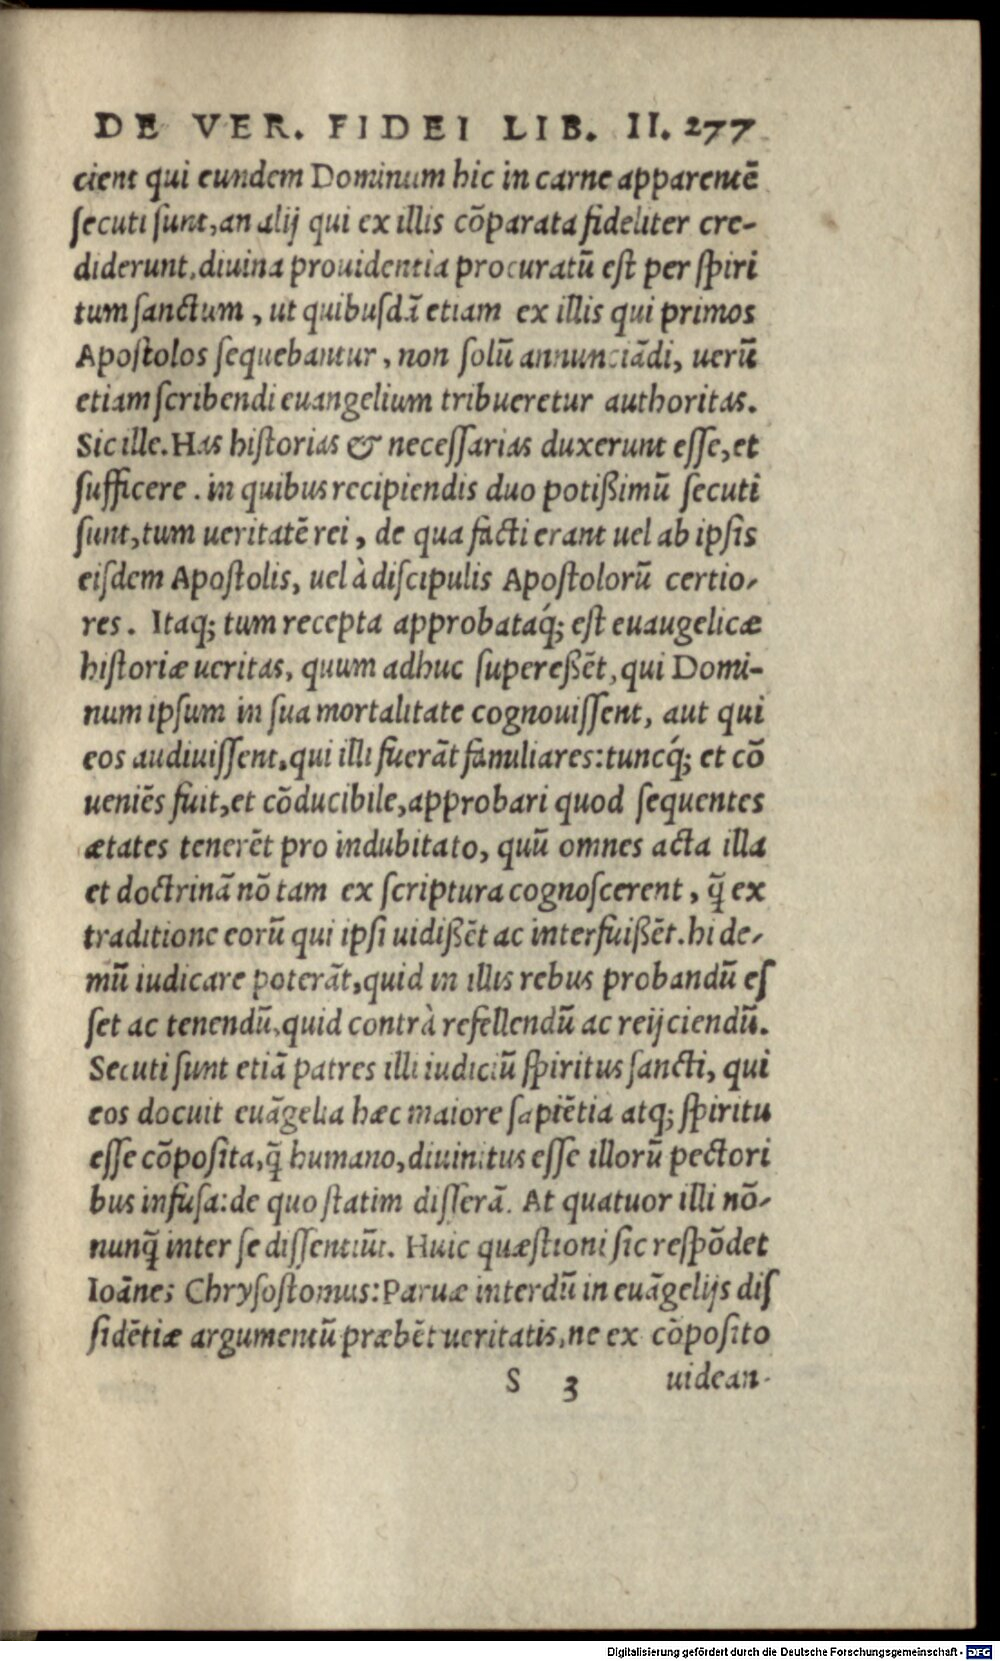 DE VER. FIDEI LIB. II. 277
cient qui eundem Dominum hic in carne apparentē
secuti sunt, an alij qui ex illis cōparata fideliter cre-
diderunt, diuina prouidentia procuratū est per spiri
tum sanctum, ut quibusdā etiam ex illis qui primos
Apostolos sequebantur, non solū annunciādi, uerū
etiam scribendi euangelium tribueretur authoritas.
Sic ille. Has historias & necessarias duxerunt esse, et
sufficere. in quibus recipiendis duo potißimū secuti
sunt, tum ueritatē rei, de qua facti erant uel ab ipsis
eisdem Apostolis, uel à discipulis Apostolorū certio-
res. Itaq; tum recepta approbataq́; est euaugelicæ
historiæ ueritas, quum adhuc superessēt, qui Domi-
num ipsum in sua mortalitate cognouissent, aut qui
eos audiuissent, qui illi fuerāt familiares: tuncq́; et cō
ueniēs fuit, et cōducibile, approbari quod sequentes
ætates tenerēt pro indubitato, quū omnes acta illa
et doctrinā nō tam ex scriptura cognoscerent, q̄ ex
traditione eorū qui ipsi uidißēt ac interfuißēt. hi de-
mū iudicare poterāt, quid in illis rebus probandū es
set ac tenendū, quid contrà refellendū ac reijciendū.
Secuti sunt etiā patres illi iudiciū spiritus sancti, qui
eos docuit euāgelia hæc maiore sapiētia atq; spiritu
esse cōposita, q̄ humano, diuinitus esse illorū pectori
bus infusa: de quo statim disserā. At quatuor illi nō-
nunq̄ inter se dissentiūt. Huic quæstioni sic respōdet
Ioānes Chrysostomus: Paruæ interdū in euāgelijs dis
sidētiæ argumentū præbēt ueritatis, ne ex cōposito
S 3 uidean-
Digitalisierung gefördert durch die Deutsche Forschungsgemeinschaft - DFG